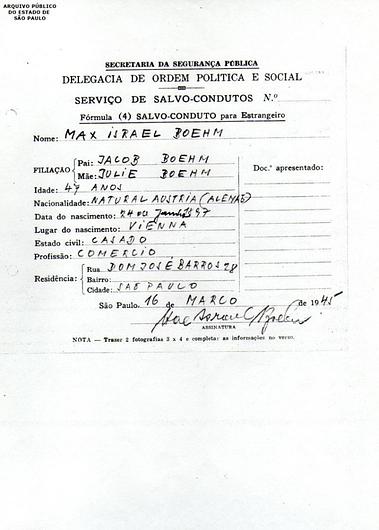 ARQUIVO PÚBLICO
DO ESTADO DE
SÃO PAULO
SECRETARIA DA SEGURANÇA PÚBLICA
DELEGACIA DE ORDEM POLITICA E SOCIAL
SERVIÇO DE SALVO-CONDUTOS N.º
Fórmula (4) SALVO-CONDUTO para Estrangeiro
Nome: MAX ISRAEL BOEHM
FILIAÇÃO Pai: JACOB BOEHM
Mãe: JULIE BOEHM
Doc.º apresentado:
Idade: 47 ANOS
Nacionalidade: NATURAL AUSTRIA (ALEMÃE)
Data do nascimento: 24 97
Lugar do nascimento: VIENNA
Estado civil: CASADO
Profissão: COMERCIO
Residência: Rua DOM JOSÉ BARROS 28
Bairro:
Cidade: SAO PAULO
São Paulo. 16 de MARCO de 1945
ASSINATURA
NOTA — Trazer 2 fotografias 3 x 4 e completar as informações no verso.